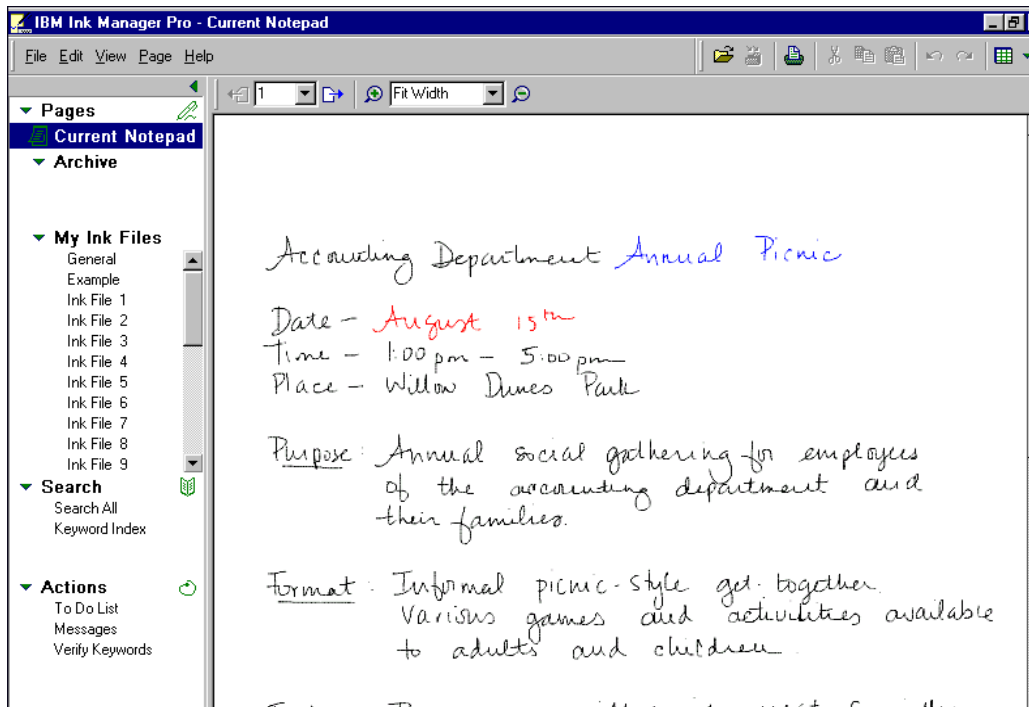 IBM Ink Manager Pro - Current Notepad
File Edit View Page Help
1 Fit Width
Pages
Current Notepad
Archive
My Ink Files
General
Example
Ink File 1
Ink File 2
Ink File 3
Ink File 4
Ink File 5
Ink File 6
Ink File 7
Ink File 8
Ink File 9
Search
Search All
Keyword Index
Actions
To Do List
Messages
Verify Keywords
Accounting Department Annual Picnic
Date - August 15th
Time - 1:00 pm - 5:00 pm
Place - Willow Dunes Park
Purpose: Annual social gathering for employees
of the accounting department and
their families.
Format: Informal picnic-style get-together
Various games and activities available
to adults and children